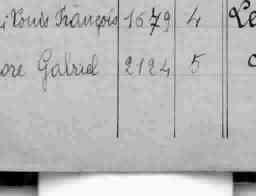 Louis François 1679 4 Le
ore Gabriel 2124 5